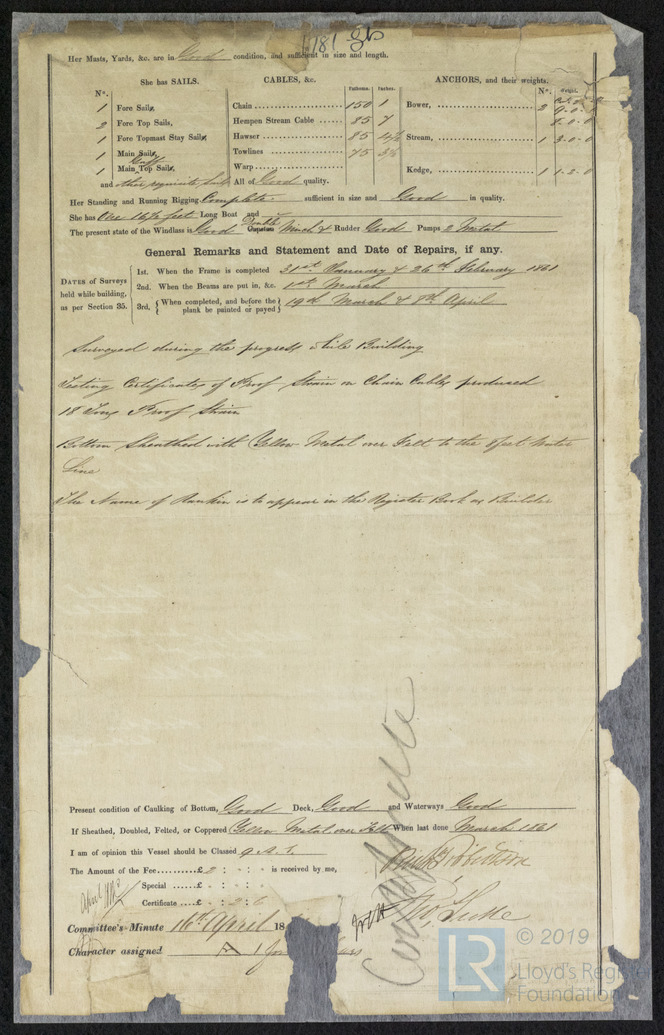 1781
Her Masts, Yards, &c. are in Good condition, and sufficient in size and length.
She has SAILS. CABLES, &c. ANCHORS, and their weights.
N°. Fathoms. Inches. N°. Weight.
1 Fore Sails, Chain 150 1 Bower, 2 9-0-0
2 Fore Top Sails, Hempen Stream Cable 85 7 8-0-0
1 Fore Topmast Stay Sails, Hawser 85 4½ Stream, 1 3-0-0
1 Main Sails, Towlines 75 3½
1 Main Gaff Top Sails, Warp Kedge, 1 1-2-0
and other requisite Sails All of Good quality.
Her Standing and Running Rigging Complete sufficient in size and Good in quality.
She has One 16½ feet Long Boat and
The present state of the Windlass is Good Capstan Winch & Rudder Good Pumps 2 Metal
General Remarks and Statement and Date of Repairs, if any.
DATES of Surveys held while building, as per Section 35.
1st. When the Frame is completed 31st January & 26th February 1861
2nd. When the Beams are put in, &c. 1st March
3rd. When completed, and before the plank be painted or payed 19th March & 8th April
Surveyed during the progress while Building
Testing Certificates of Proof Strain on Chain Cables produced
18 Tons Proof Strain
Bottom Sheathed with Yellow Metal over Felt to the 8 feet Water
Line
The Name of Rankin is to appear in the Register Book as Builder
Present condition of Caulking of Bottom, Good Deck, Good and Waterways Good
If Sheathed, Doubled, Felted, or Coppered Yellow Metal over Felt When last done March 1861
I am of opinion this Vessel should be Classed 9 A.1.
The Amount of the Fee £2 : - : - is received by me,
Special £ : :
Certificate £ : 2 : 6
Committee's Minute 16th April 18
Character assigned A 1 for
© 2019
LR
Lloyd's Register
Foundation